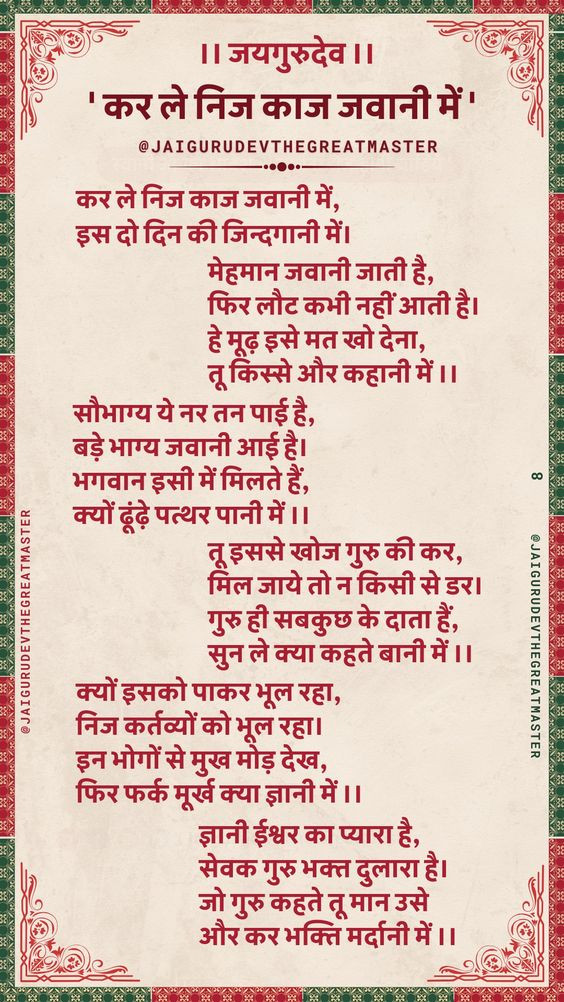 ।। जयगुरुदेव ।।
' कर ले निज काज जवानी में '
@JAIGURUDEVTHEGREATMASTER
कर ले निज काज जवानी में,
इस दो दिन की जिन्दगानी में।
मेहमान जवानी जाती है,
फिर लौट कभी नहीं आती है।
हे मूढ़ इसे मत खो देना,
तू किस्से और कहानी में ।।
सौभाग्य ये नर तन पाई है,
बड़े भाग्य जवानी आई है।
भगवान इसी में मिलते हैं,
क्यों ढूंढ़े पत्थर पानी में ।।
तू इससे खोज गुरु की कर,
मिल जाये तो न किसी से डर।
गुरु ही सबकुछ के दाता हैं,
सुन ले क्या कहते बानी में ।।
क्यों इसको पाकर भूल रहा,
निज कर्तव्यों को भूल रहा।
इन भोगों से मुख मोड़ देख,
फिर फर्क मूर्ख क्या ज्ञानी में ।।
ज्ञानी ईश्वर का प्यारा है,
सेवक गुरु भक्त दुलारा है।
जो गुरु कहते तू मान उसे
और कर भक्ति मर्दानी में ।।
@JAIGURUDEVTHEGREATMASTER
8
@JAIGURUDEVTHEGREATMASTER